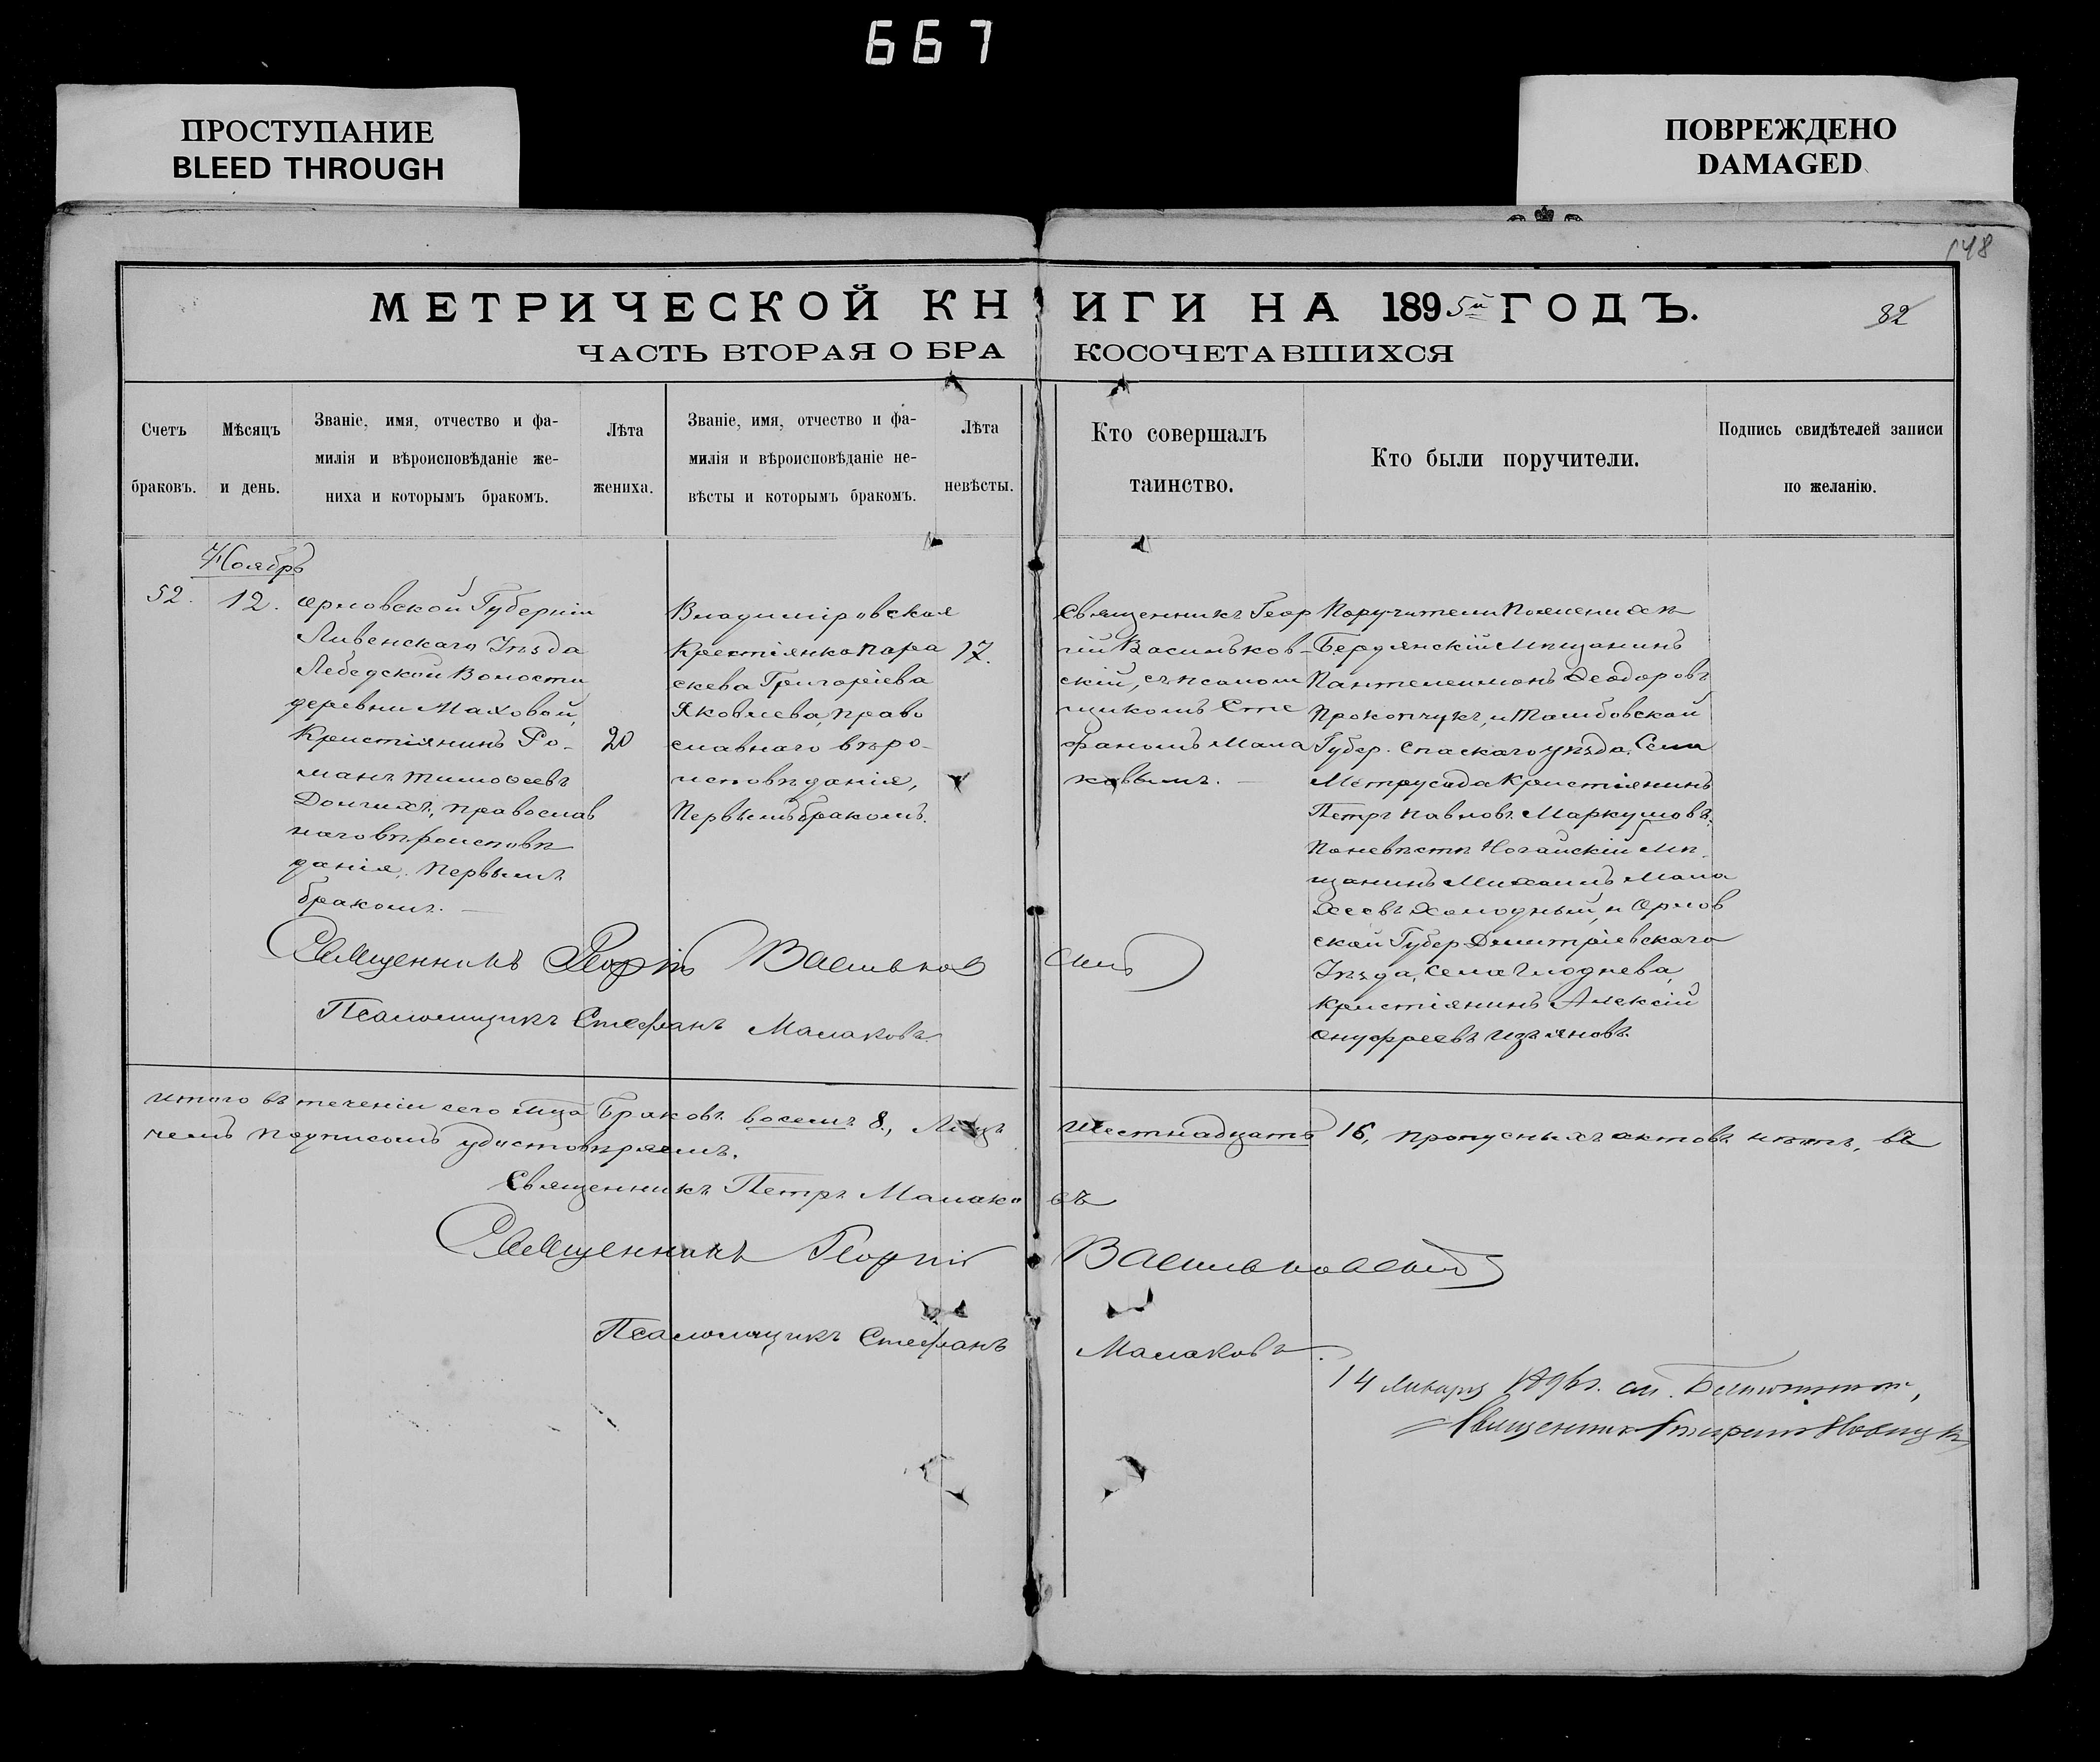 667
ПРОСТУПАНИЕ
BLEED THROUGH
ПОВРЕЖДЕНО
DAMAGED
148
МЕТРИЧЕСКОЙ КНИГИ НА 1895й ГОДЪ.
82
ЧАСТЬ ВТОРАЯ О БРАКОСОЧЕТАВШИХСЯ
Счетъ
браковъ.
Мѣсяцъ
и день.
Званіе, имя, отчество и фа-
милія и вѣроисповѣданіе же-
ниха и которымъ бракомъ.
Лѣта
жениха.
Званіе, имя, отчество и фа-
милія и вѣроисповѣданіе не-
вѣсты и которымъ бракомъ.
Лѣта
невѣсты.
Кто совершалъ
таинство.
Кто были поручители.
Подпись свидѣтелей записи
по желанію.
Ноябрь
52.
12.
Орловской Губерніи
Ливенскаго Уѣзда
Лебедской Волости
деревни Маховой,
Крестіянинъ Ро-
манъ Тимоѳеевъ
Долгихъ, православ
наго вѣроисповѣ
данія, первымъ
бракомъ. —
20
Владимировская
Крестіянка Пара
скева Григоріева
Яковлева, право
славнаго вѣро-
исповѣданія,
Первымъ бракомъ.
17.
Священникъ Геор
гій Васильков-
скій, съ псалом
щикомъ Сте
фаномъ Мала
ковымъ. —
Поручители По женихѣ
Бердянскій Мѣщанинъ
Пантелеимонъ Ѳеодоровъ
Прокопчукъ, и Тамбовской
Губер. Спаскаго уѣзда, Села
Крестіянинъ
Петръ Павловъ Маркушовъ.
По невѣстѣ Ногайскій Мѣ-
щанинъ Михаилъ Мала
хеевъ Холодный, и Орлов
ской Губер Дмитріевскаго
Уѣзда, Села Глоднева,
Крестіянинъ Алексій
Онуфреевъ Изъяновъ.
Священникъ Георгій Васильковскій
Псаломщикъ Стефанъ Малаковъ.
Итого въ теченіи сего мца Браковъ восемь 8., Лицъ шестнадцать 16, пропускныхъ актовъ нѣтъ, въ
чемъ подписомъ удостовѣряемъ.
Священникъ Петръ Малаковъ
Священникъ Георгій Васильковскій
Псаломщикъ Стефанъ Малаковъ.
14 Января 1896 г.
Священникъ